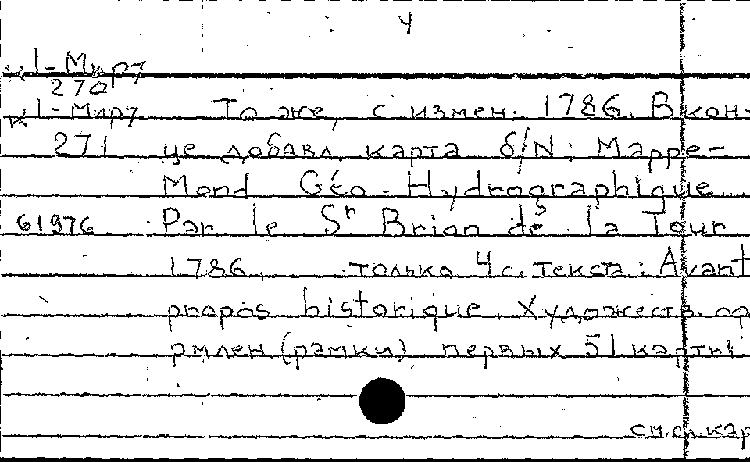 4
1-Мир7
270
1-Мир7 То же, с измен. 1786. В кон-
271 це добавл. карта б/N: Mappe-
Mond Géo-Hydrographique
61976 Par le Sr Brion de la Tour
1786. только 4 с. текста: Avant
propos historique. Художеств. оф
рмлен (рамки) первых 51 карты
см. сл. кар